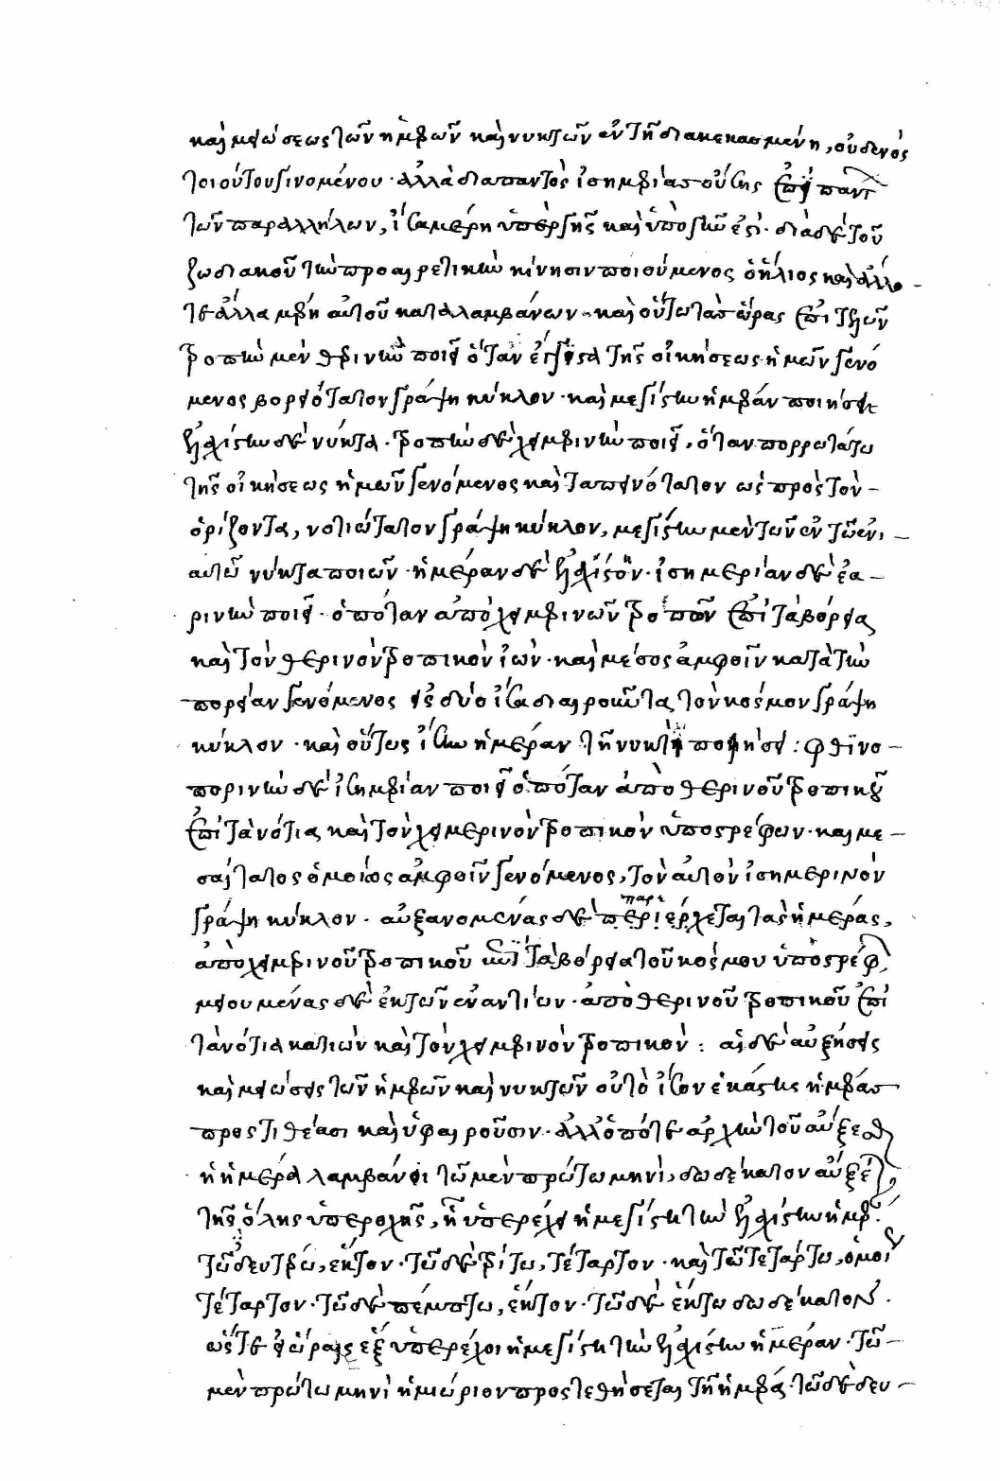 καὶ μειώσεως τῶν ἡμερῶν καὶ νυκτῶν ἐν τῇ διακεκαυμένῃ, οὐδενὸς
τοιούτου γινομένου· ἀλλὰ διαπαντὸς ἰσημερίας οὔσης ἐπεὶ παντ
τῶν παραλλήλων, ἴσα μέρη ὑπὲρ γῆς καὶ ὑπὸ γῆν ἐστί· διὰ δὲ τοῦ
ζωδιακοῦ τὴν προαιρετικὴν κίνησιν ποιούμενος ὁ ἥλιος καὶ ἄλλο
τε ἄλλα μέρη αὐτοῦ καταλαμβάνων· καὶ οὕτω τὰς ὥρας ἐπὶ τῶν
τροπὴν μὲν θερινὴν ποιεῖ ὅταν ἐγγύτατα τῆς οἰκήσεως ἡμῶν γενό
μενος βορειότατον γράψῃ κύκλον· καὶ μεγίστην ἡμέραν ποιήσει
ἐλαχίστην δὲ νύκτα· τροπὴν δὲ χειμερινὴν ποιεῖ, ὅταν πορρωτάτω
τῆς οἰκήσεως ἡμῶν γενόμενος καὶ ταπεινότατον ὡς πρὸς τὸν
ὁρίζοντα, νοτιώτατον γράψῃ κύκλον, μεγίστην μὲν τῶν ἐν τῷ ἐνι
αυτῷ νύκτα ποιῶν· ἡμέραν δὲ ἐλαχίστην· ἰσημερίαν δὲ ἐα
ρινὴν ποιεῖ· ὁπόταν ἀπὸ χειμερινῶν τροπῶν ἐπὶ τὰ βόρεια
καὶ τὸν θερινὸν τροπικὸν ἰών· καὶ μέσος ἀμφοῖν κατὰ τὴν
πορείαν γενόμενος εἰς δύο ἴσα διαιροῦντα τὸν κόσμον γράψῃ
κύκλον· καὶ οὕτως ἴσην ἡμέραν τῇ νυκτὶ ποιήσει: φθινο
πορινὴν δὲ ἰσημερίαν ποιεῖ ὁπόταν ἀπὸ θερινοῦ τροπικοῦ
ἐπὶ τὰ νότια καὶ τὸν χειμερινὸν τροπικὸν ὑποστρέφων· καὶ με
σαίτατος ὁμοίως ἀμφοῖν γενόμενος, τὸν αὐτὸν ἰσημερινὸν
γράψῃ κύκλον· αὐξανομένας δὲ περιέρχεται τὰς ἡμέρας,
ἀπὸ χειμερινοῦ τροπικοῦ ἐπὶ τὰ βόρεια τοῦ κόσμου ὑποστρέφ
μειουμένας δὲ ἐκ τῶν ἐναντίων· ἀπὸ θερινοῦ τροπικοῦ ἐπὶ
τὰ νότια κατιὼν καὶ τὸν χειμερινὸν τροπικόν: αἱ δὲ αὐξήσεις
καὶ μειώσεις τῶν ἡμερῶν καὶ νυκτῶν οὐ τὸ ἴσον ἑκάστης ἡμέρας
προστιθέασι καὶ ὑφαιροῦσιν· ἀλλ' ὁπότε ἀρχὴν τοῦ αὔξεσθ
ἡ ἡμέρα λαμβάνει τῷ μὲν πρώτω μηνὶ, δωδέκατον αὔξετ
τῆς ὅλης ὑπεροχῆς, ἣ ὑπερέχει ἡ μεγίστη τὴν ἐλαχίστην ἡμερ.
τῷ δευτέρω, ἕκτον· τῷ δὲ τρίτω, τέταρτον· καὶ τῷ τετάρτω, ὁμοί
τέταρτον· τῷ δὲ πέμπτω, ἕκτον· τῷ δὲ ἕκτω δωδέκατον.
ὥστε εἰ ὥραις ἓξ ὑπερέχοι ἡ μεγίστη τὴν ἐλαχίστην ἡμέραν· τῷ
μὲν πρώτω μηνὶ ἡμιώριον προστεθήσεται τῇ ἡμέρα· τῷ δὲ δευ